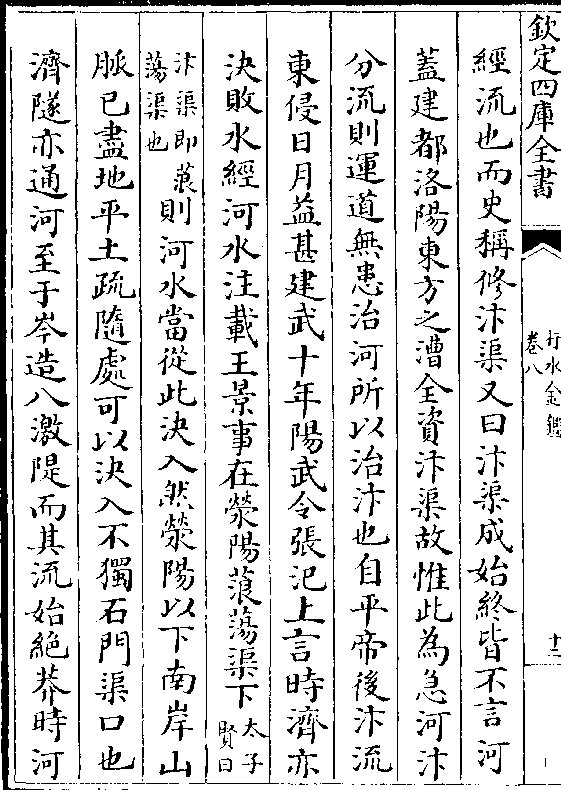 欽定四庫全書
行水金鑑
卷八
十二
經流也而史稱修汴渠又曰汴渠成始終皆不言河
蓋建都洛陽東方之漕全資汴渠故惟此為急河汴
分流則運道無患治河所以治汴也自平帝後汴流
東侵日月益甚建武十年陽武令張汜上言時濟亦
決敗水經河水注載王景事在滎陽蒗蕩渠下太子賢曰
汴渠即蒗蕩渠也則河水當從此決入然滎陽以下南岸山
脈已盡地平土疏隨處可以決入不獨石門渠口也
濟隧亦通河至于岑造八激隄而其流始絕莽時河